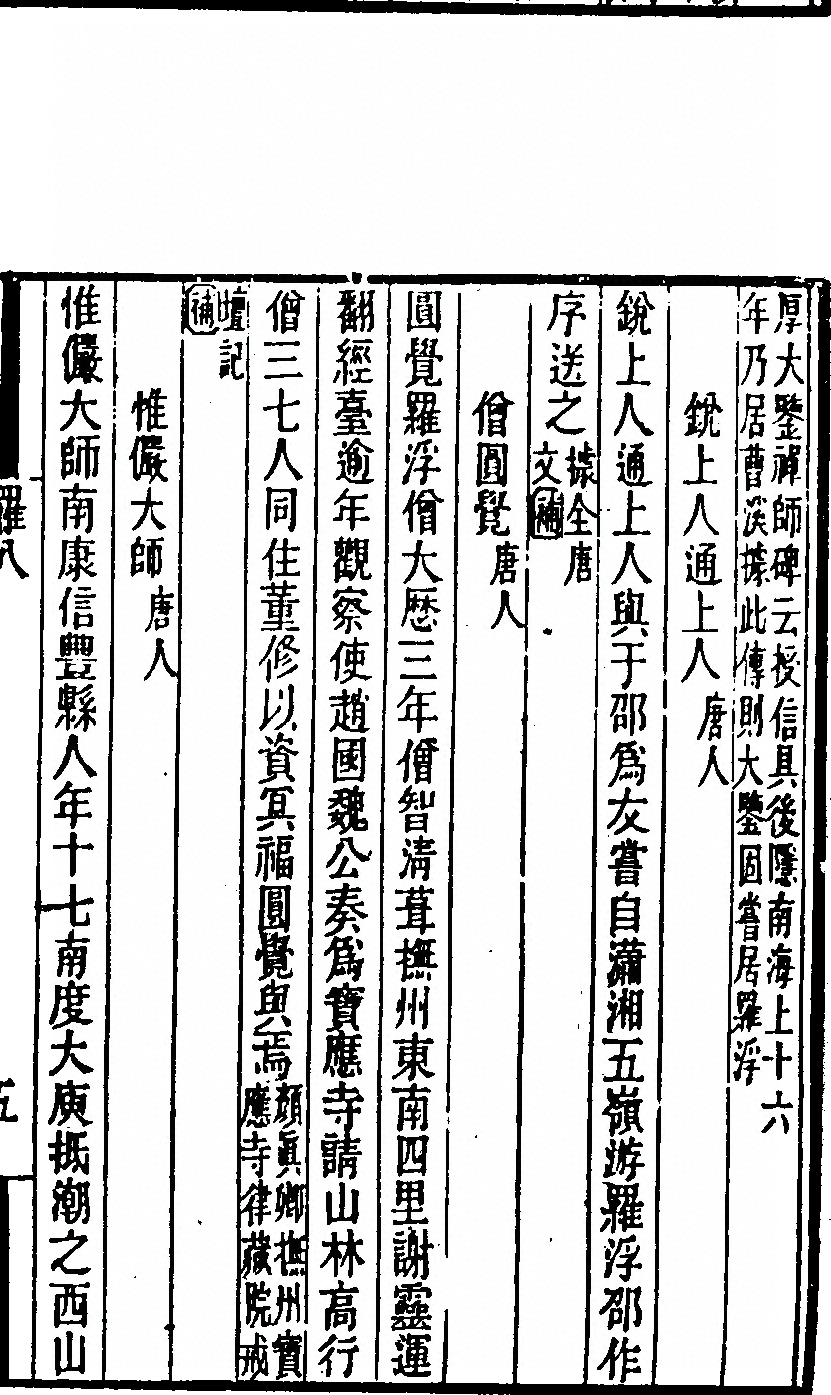 厚大鑒禪師碑云授信具後隱南海上十六
年乃居曹溪據此傳則大鑒固嘗居羅浮
銳上人通上人唐人
銳上人通上人與于邵爲友嘗自瀟湘五嶺游羅浮邵作
序送之據全唐
文補
僧圓覺唐人
圓覺羅浮僧大歷三年僧智清葺撫州東南四里謝靈運
翻經臺逾年觀察使趙國魏公奏爲寶應寺請山林高行
僧三七人同住董修以資冥福圓覺與焉顏眞卿撫州寶
應寺律藏院戒
壇記
補
惟儼大師唐人
惟儼大師南康信豐縣人年十七南度大庾抵潮之西山
羅八
五